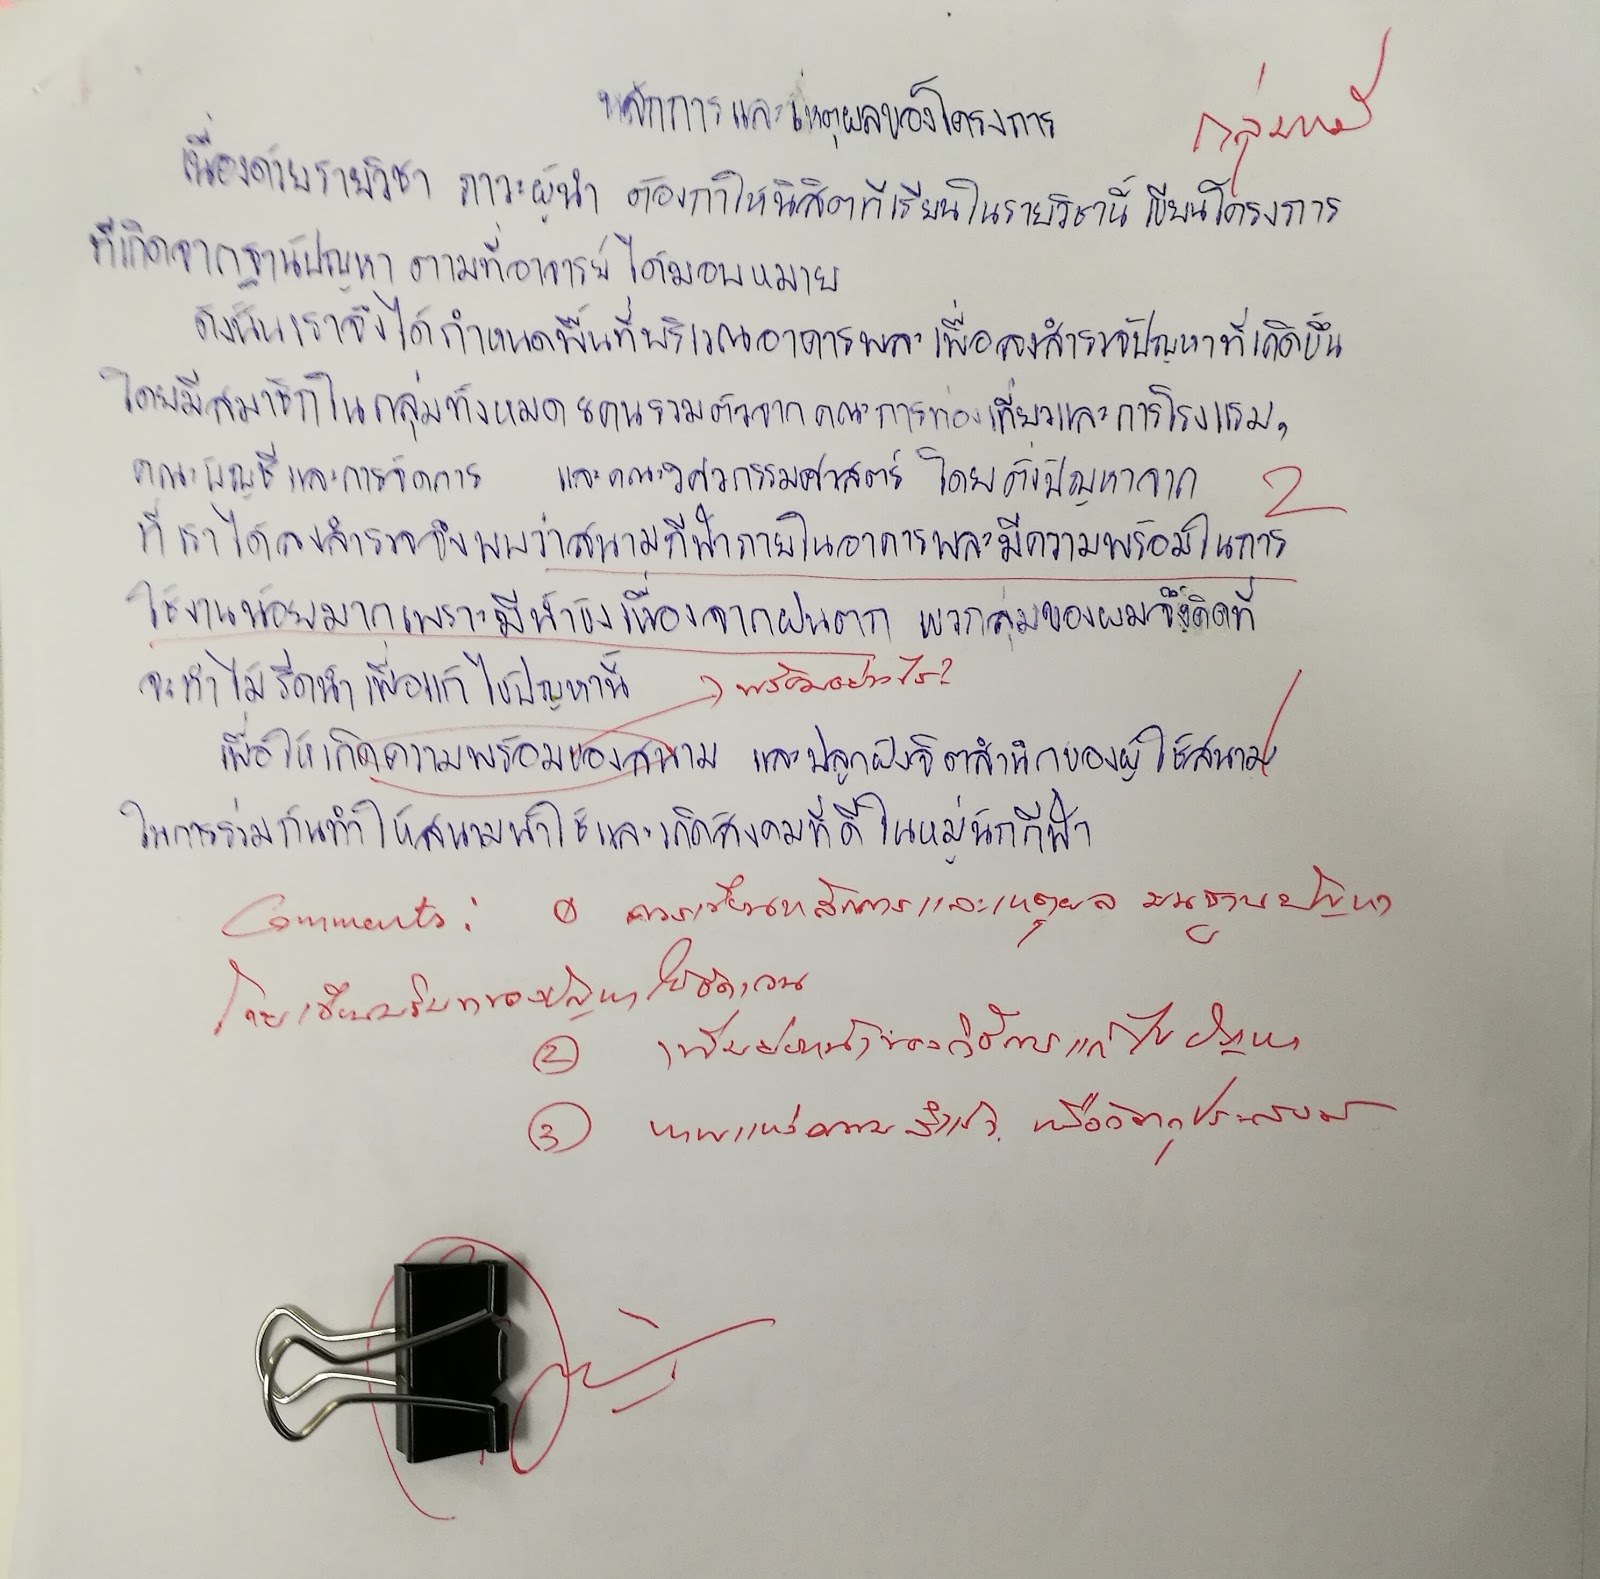 หลักการและเหตุผลของโครงการ
กลุ่มหมี
เนื่องด้วยรายวิชา ภาวะผู้นำ ต้องทำให้นิสิตที่เรียนในรายวิชานี้ เขียนโครงการ
ที่เกิดจากฐานปัญหา ตามที่อาจารย์ ได้มอบหมาย
ดังนั้นเราจึงได้กำหนดพื้นที่บริเวณอาคารพละเพื่อลงสำรวจปัญหาที่เกิดขึ้น
โดยมีสมาชิกในกลุ่มทั้งหมด 8 คนรวมตัวจากคณะการท่องเที่ยวและการโรงแรม,
คณะบัญชีและการจัดการ และคณะวิศวกรรมศาสตร์ โดยตั้งปัญหาจาก
2
ที่เราได้ลงสำรวจจึงพบว่าสนามกีฬาภายในอาคารพละมีความพร้อมในการ
ใช้งานน้อยมากเพราะมีน้ำขังเนื่องจากฝนตก พวกลุ่มของผมจึงคิดที่
จะทำไม้รีดน้ำเพื่อแก้ไขปัญหานี้
พร้อมอย่างไร?
เพื่อให้เกิดความพร้อมของสนาม และปลูกฝังจิตสำนึกของผู้ใช้สนาม
ในการร่วมกันทำให้สนามน่าใช้และเกิดสังคมที่ดีในหมู่นักกีฬา
Comments: ① ควรเขียนหลักการและเหตุผล บนฐานปัญหา
โดยเขียนบริบทของปัญหาให้ชัดเจน
② เขียนย่อหน้าของวิธีการแก้ไขปัญหา
③ หรือวัตถุประสงค์